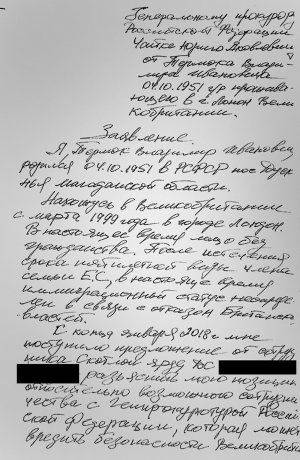 Генеральному прокурору
Российской Федерации
Чайке Юрию Яковлевичу
от Термока Влади-
мира Ивановича
04.10.1951 г/р прожива-
ющего в г. Лондон Вели-
кобритании.
Заявление.
Я, Термок Владимир Иванович
родился 04.10.1951 в РСФСР пос
Магаданской области.
Нахожусь в Великобритании
с марта 1999 года в городе Лондон.
В настоящее время лицо без
гражданства. После истечения
срока пятилетней визы члена
семьи ЕС, в настоящее время
иммиграционный статус
в связи с отказом Британских
властей.
С конца января 2018 г. мне
поступило предложение от сотруд-
ника Скотланд Ярд
разъяснить мою позицию
относительно возможного сотрудни-
чества с Генпрокуратурой Россий-
ской Федерации, которая может
вредить безопасности Великобрит